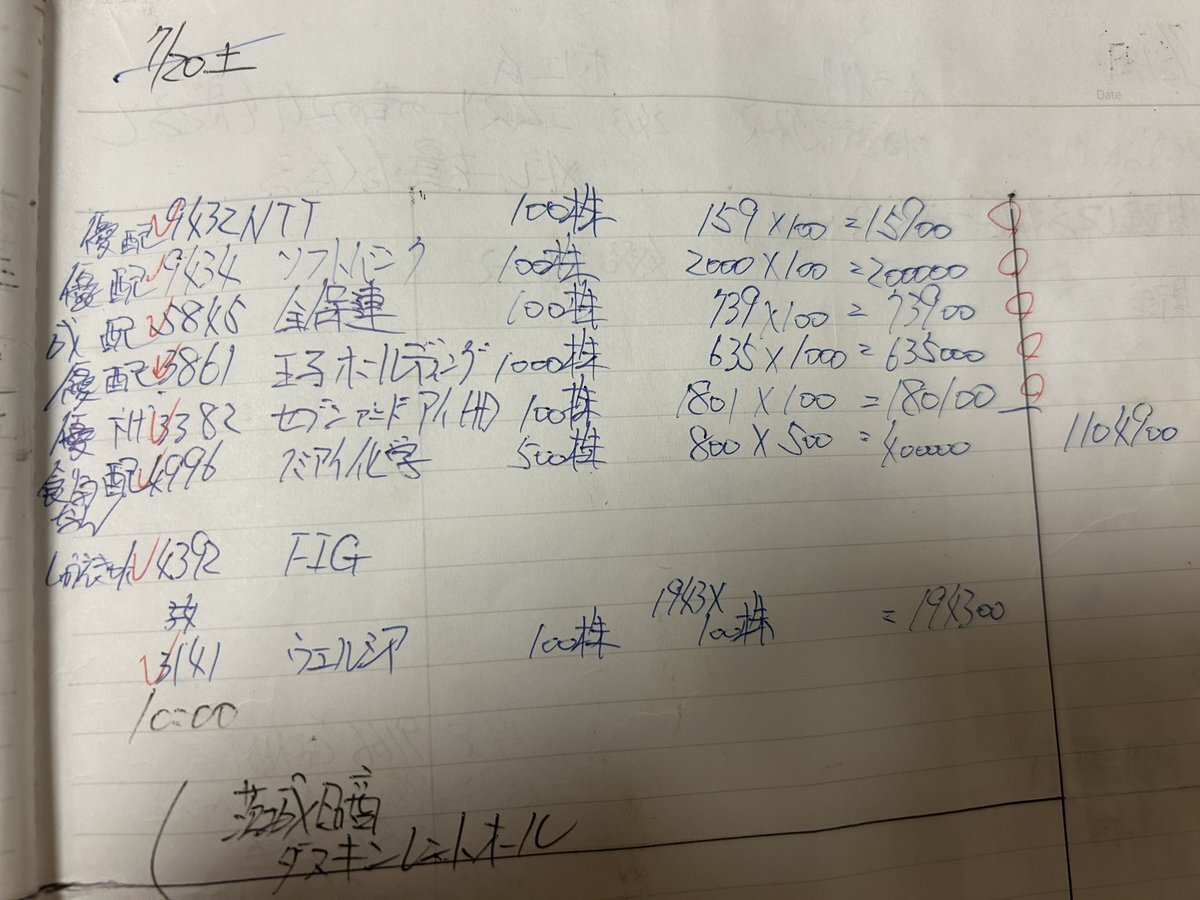 7/20土
Date
優配 9432 NTT 100株 159×100=15900
優配 9434 ソフトバンク 100株 2000×100=200000
成配 5845 全保連 100株 739×100=73900
優配 3861 王子ホールディング 1000株 635×1000=635000
優 3382 セブンアンドアイ(H) 100株 1801×100=180100
配 4996 クミアイ化学 500株 800×500=400000 1104900
なし
4392 FIG
1943×
3141 ウエルシア 100株 100株 =194300
10:00
ダスキンレントオール